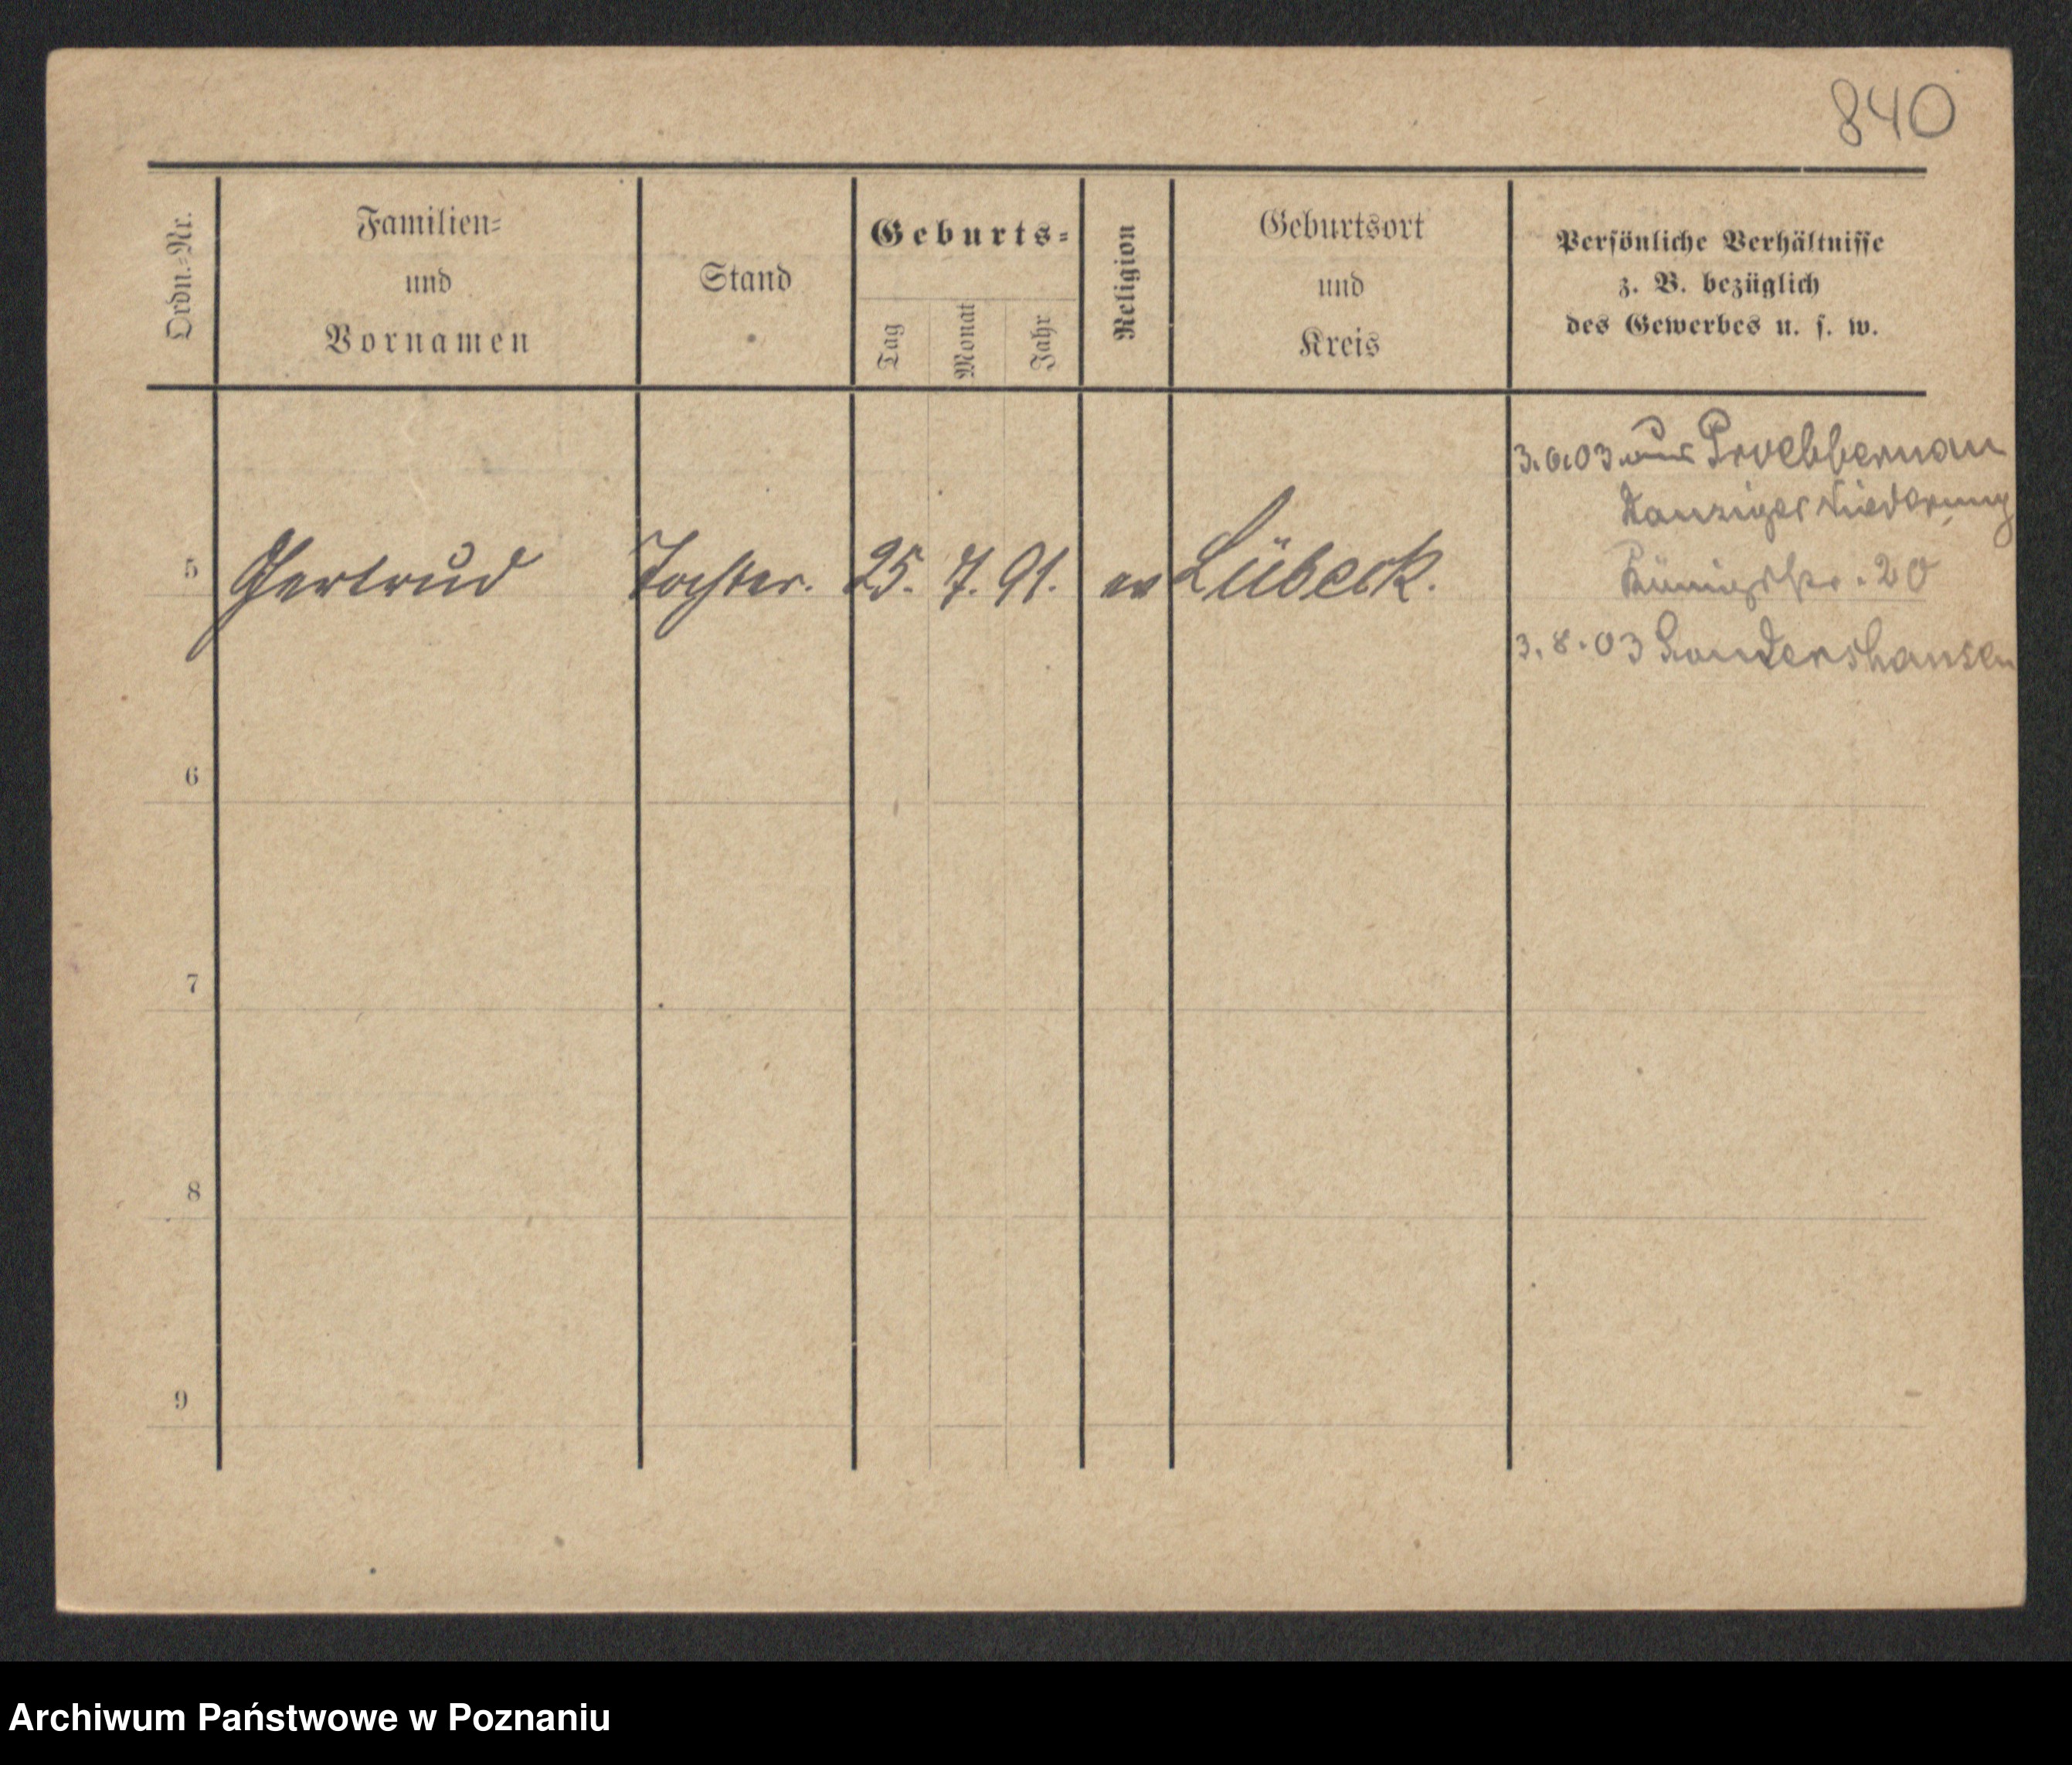 840
Ordn.-Nr.
Familien-
und
Vornamen
Stand
Geburts-
Tag
Monat
Jahr
Religion
Geburtsort
und
Kreis
Persönliche Verhältnisse
z. B. bezüglich
des Gewerbes u. s. w.
3.6.03 aus Proebbernau
Danziger Niederung
5 Gertrud Tochter. 25. 7. 91. ev Lübeck.
Königstr. 20
3.8.03 Sondershausen
6
7
8
9
Archiwum Państwowe w Poznaniu